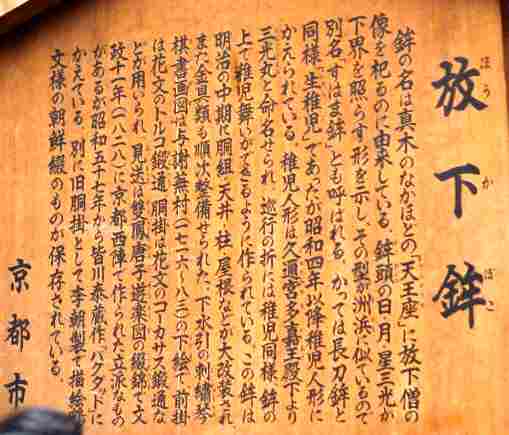 放下鉾
ほうかぼこ
鉾の名は真木のなかほどの「天王座」に放下僧の
像を祀るのに由来している。鉾頭の日・月・星三光が
下界を照らす形を示し、その型が洲浜に似ているので
別名「すはま鉾」とも呼ばれる。かつては長刀鉾と
同様「生稚児」であったが昭和四年以降稚児人形に
かえられている。稚児人形は久邇宮多嘉王殿下より
三光丸と命名せられ、巡行の折には稚児同様、鉾の
上で稚児舞いができるように作られている。この鉾は
明治の中期に胴組・天井・柱・屋根などが大改装され
また金具類も順次整備せられた。下水引の刺繍琴
棋書画図は与謝蕪村(一七一六〜八三)の下絵で、前掛
は花文のトルコ緞通、胴掛は花文のコーカサス緞通な
どが用いられ、見送は雙鳳唐子遊楽図の綴錦で文
政十一年(一八二八)に京都西陣で作られた立派なもの
があるが昭和五十七年から皆川泰蔵作、バグダッドに
かえている。別に旧胴掛として李朝製で描絵
文様の朝鮮綴のものが保存されている。
京都市